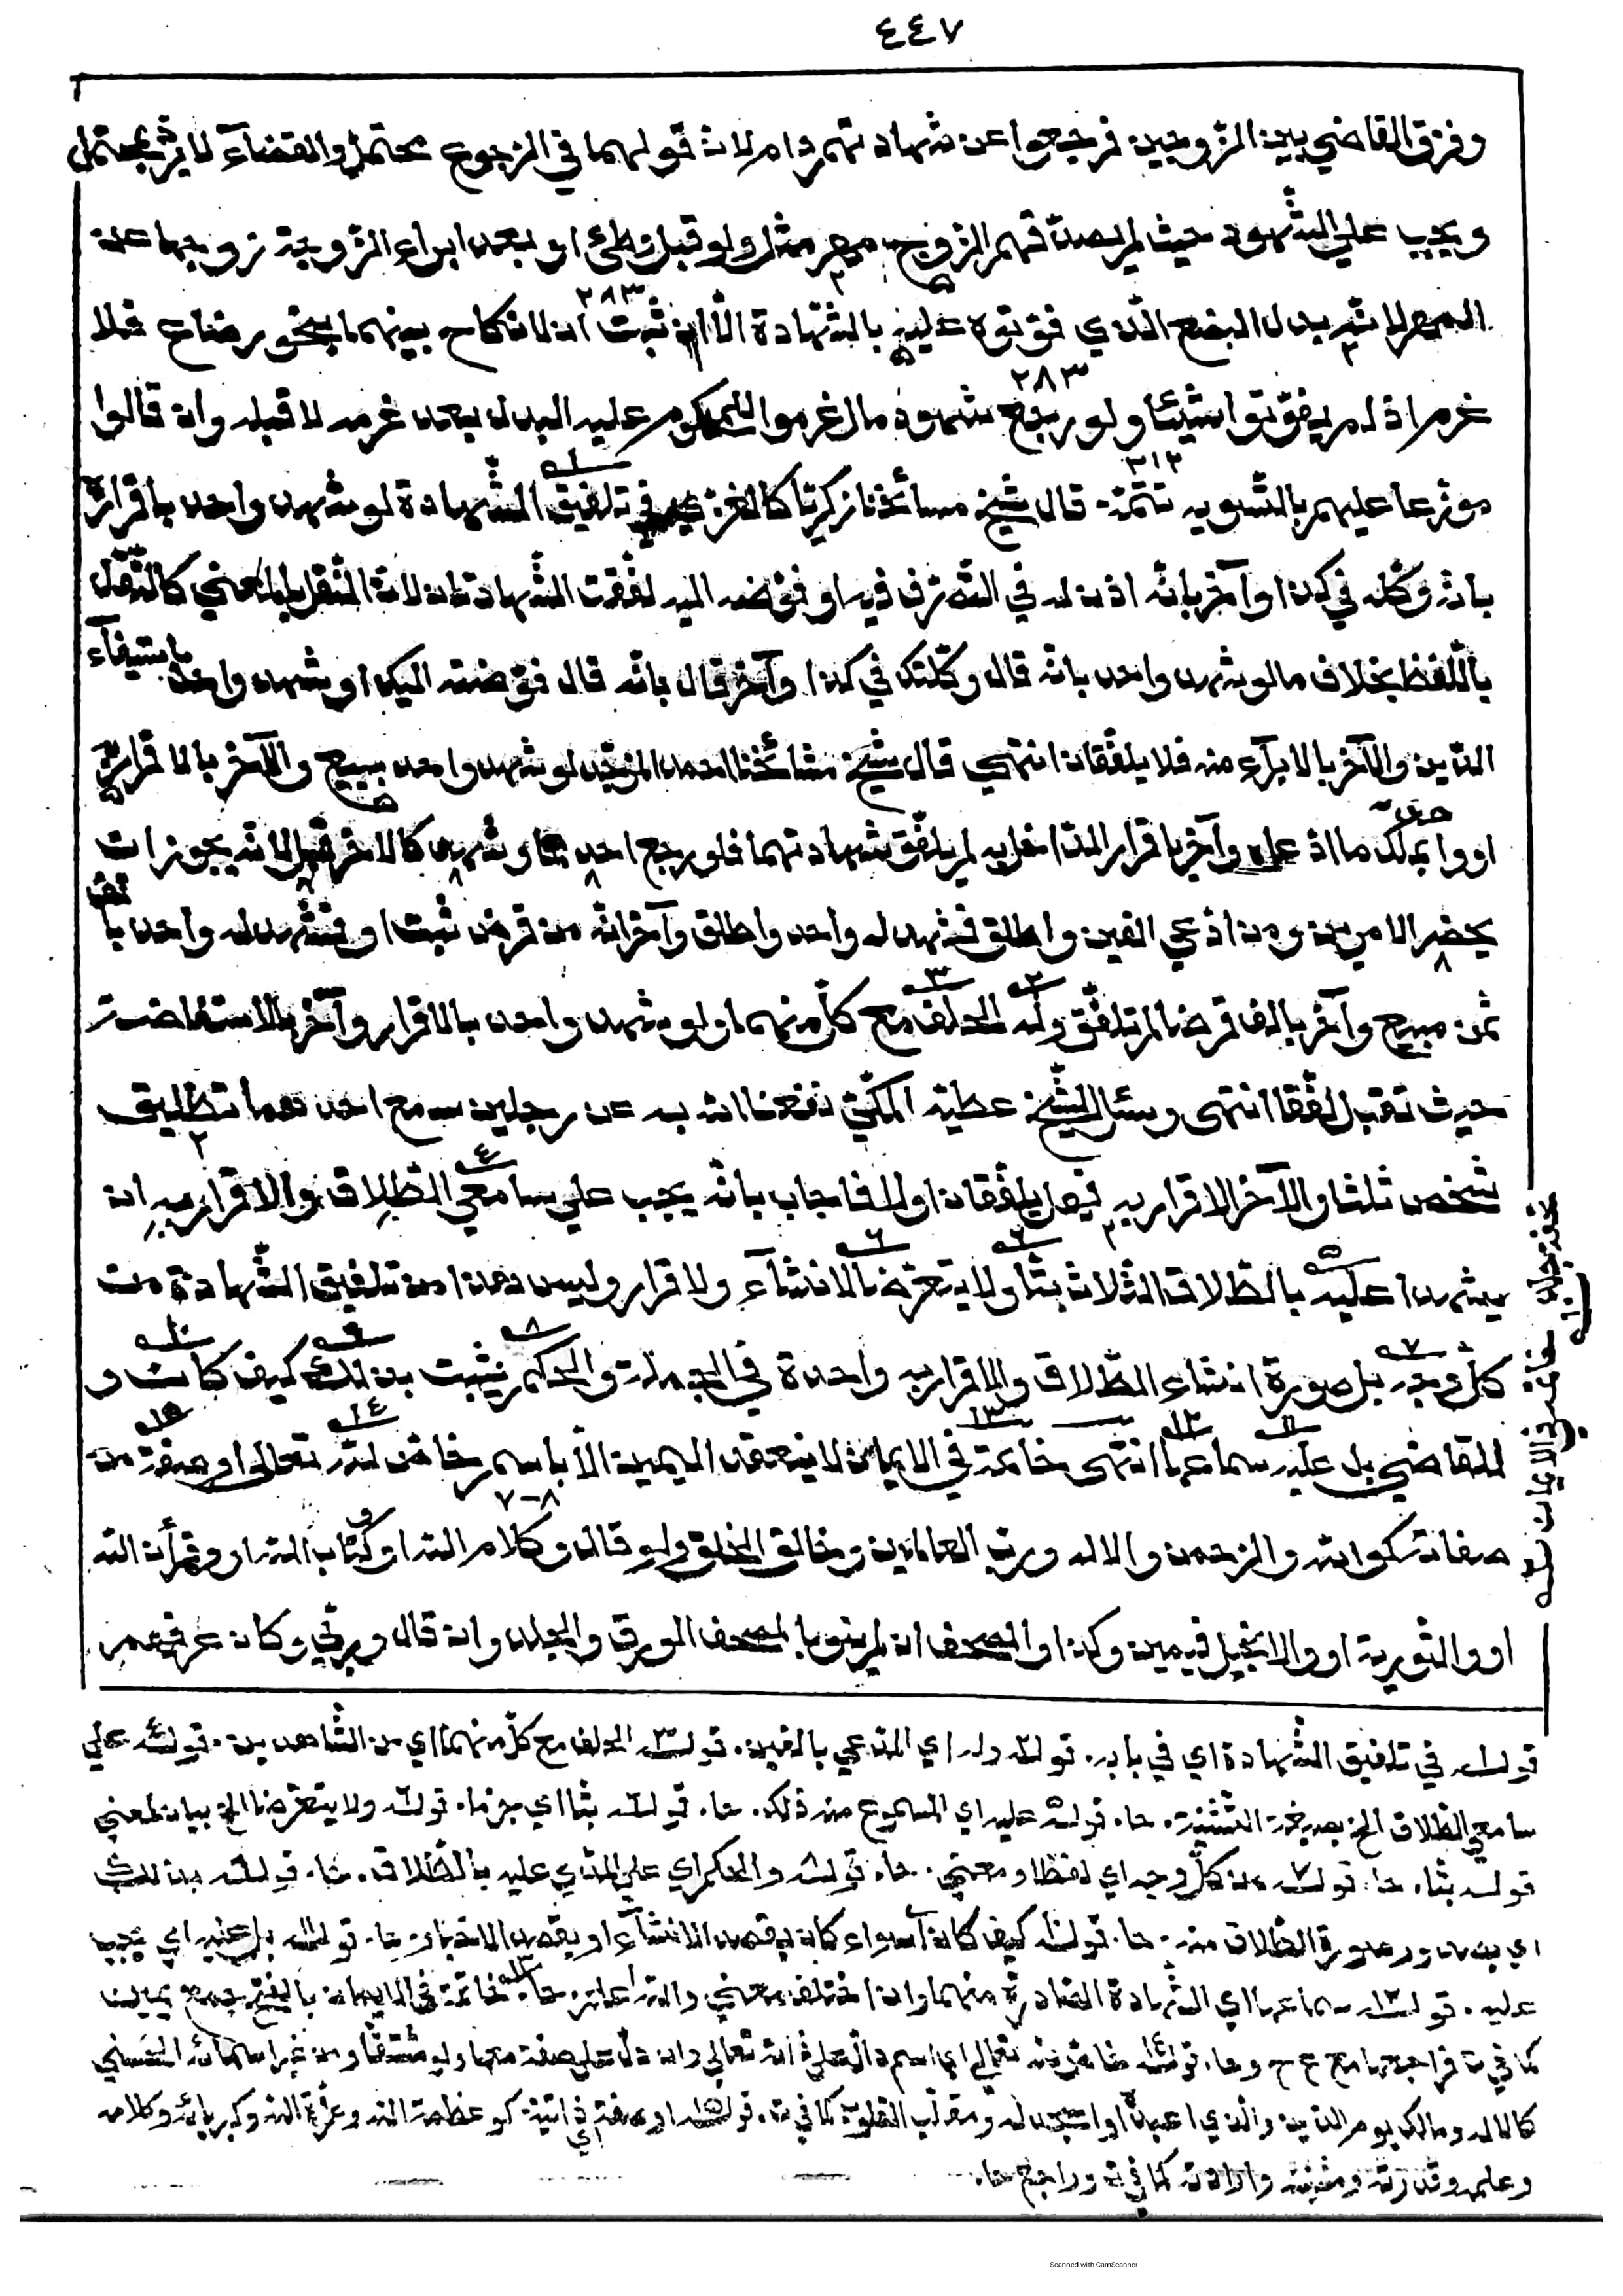 ٤٤٧
وفرق القاضي بين الزوجين فرجعوا عن شهادتهم دام لان قولهما في الرجوع محتمل والقضاء لا يرد بمحتمل
ويجب على الشهود حيث لم يصدقهم الزوج مهر مثل ولو قبل وطئ او بعد ابراء الزوجة زوجها عن
المهر لانه بدل البضع الذي فوتوه عليه بالشهادة الا ان ثبت ان لا نكاح بينهما بنحو رضاع فلا
٢٨٣
غرم اذ لم يفوتوا شيئا ولو رجع شهود مال غرموا للمحكوم عليه البدل بعد غرمه لا قبله وان قالوا
٢٨٣
موزعا عليهم بالتسوية تتمة قال شيخ مشائخنا زكريا كالغزي في تلفيق الشهادة لو شهد واحد باقراره
٣١٢
بانه وكله في كذا وآخر بانه اذن له في التصرف فيه او فوضه اليه لفقت الشهادتان لان النقل بالمعنى كالنقل
باللفظ بخلاف ما لو شهد واحد بانه قال وكلتك في كذا وآخر قال بانه قال فوضته اليك او شهد واحد باستيفاء
الدين والآخر بالابراء منه فلا يلفقان انتهى قال شيخ مشائخنا احمد المزجد لو شهد واحد ببيع والآخر بالاقرار به
او واحد بملك ما ادعاه وآخر باقرار الداخل به لم يلفق شهادتهما فلو رجع احدهما وشهد كالآخر قبل لانه يجوز ان
يحضر الامرين ومن ادعى الفين واطلق فشهد له واحد واطلق وآخر انه من قرض ثبت او فشهد له واحد بالف
ثمن مبيع وآخر بالف قرضا لم تلفق وله الحلف مع كل منهما ولو شهد واحد بالاقرار وآخر بالاستفاضة
حيث تقبل لفقا انتهى وسئل الشيخ عطية المكي نفعنا الله به عن رجلين سمع احدهما تطليق
شخص ثلثا والآخر الاقرار به فهل يلفقان او لا فاجاب بانه يجب على سامعي الطلاق والاقرار به ان
يشهدا عليه بالطلاق الثلاث بتا ولا يتعرضا لانشاء ولا اقرار وليس هذا من تلفيق الشهادة من
كل وجه بل صورة انشاء الطلاق والاقرار به واحدة في الجملة والحكم يثبت بذلك كيف كان و
للقاضي بل عليه سماعها انتهى خاتمة في الايمان لا ينعقد اليمين الا باسم خاص لله تعالى او صفة من
٧-٨
صفاته كوالله والرحمن والاله ورب العالمين وخالق الخلق ولو قال وكلام الله او وكتاب الله او وقرآن الله
او والتورية او والانجيل فيمين وكذا والمصحف ان لم ينو بالمصحف الورق والجلد وان قال وربي وكان عرفهم
قوله في تلفيق الشهادة اي في بابه. قوله وله اي المدعي بالفين. قوله الحلف مع كل منهما اي من الشاهدين. قوله على
سامعي الطلاق الخ بصيغة التثنية. حا. قوله عليه اي المسموع منه ذلك. حا. قوله بتا اي جزما. قوله ولا يتعرضا الخ بيان لمعنى
قوله بتا. حا. قوله من كل وجه اي لفظا ومعنى. حا. قوله والحكم اي على المدعي عليه بالطلاق. حا. قوله بذلك
اي بصدور صورة الطلاق منه. حا. قوله كيف كان اسواء كان بقصد الانشاء او بقصد الاخبار. حا. قوله بل عليه اي يجب
عليه. قوله سماعها اي الشهادة الصادرة منهما وان اختلف معنى والله اعلم. حا. خاتمة في الايمان بالفتح جمع يمين
كما في فراجعها مع ع ح وحا. قوله خاص لله تعالى اي اسم دال على الله تعالى وان دل على صفة معها ولو مشتقا ومن غير اسمائه الحسنى
كالاله ومالك يوم الدين والذي اعبده او اسجد له ومقلب القلوب كما في ت. قوله او صفة اي ذاتية كوعظمة الله وعزة الله وكبريائه وكلامه
وعلمه وقدرته ومشيته وارادته كما في ت وراجع حا.
Scanned with CamScanner